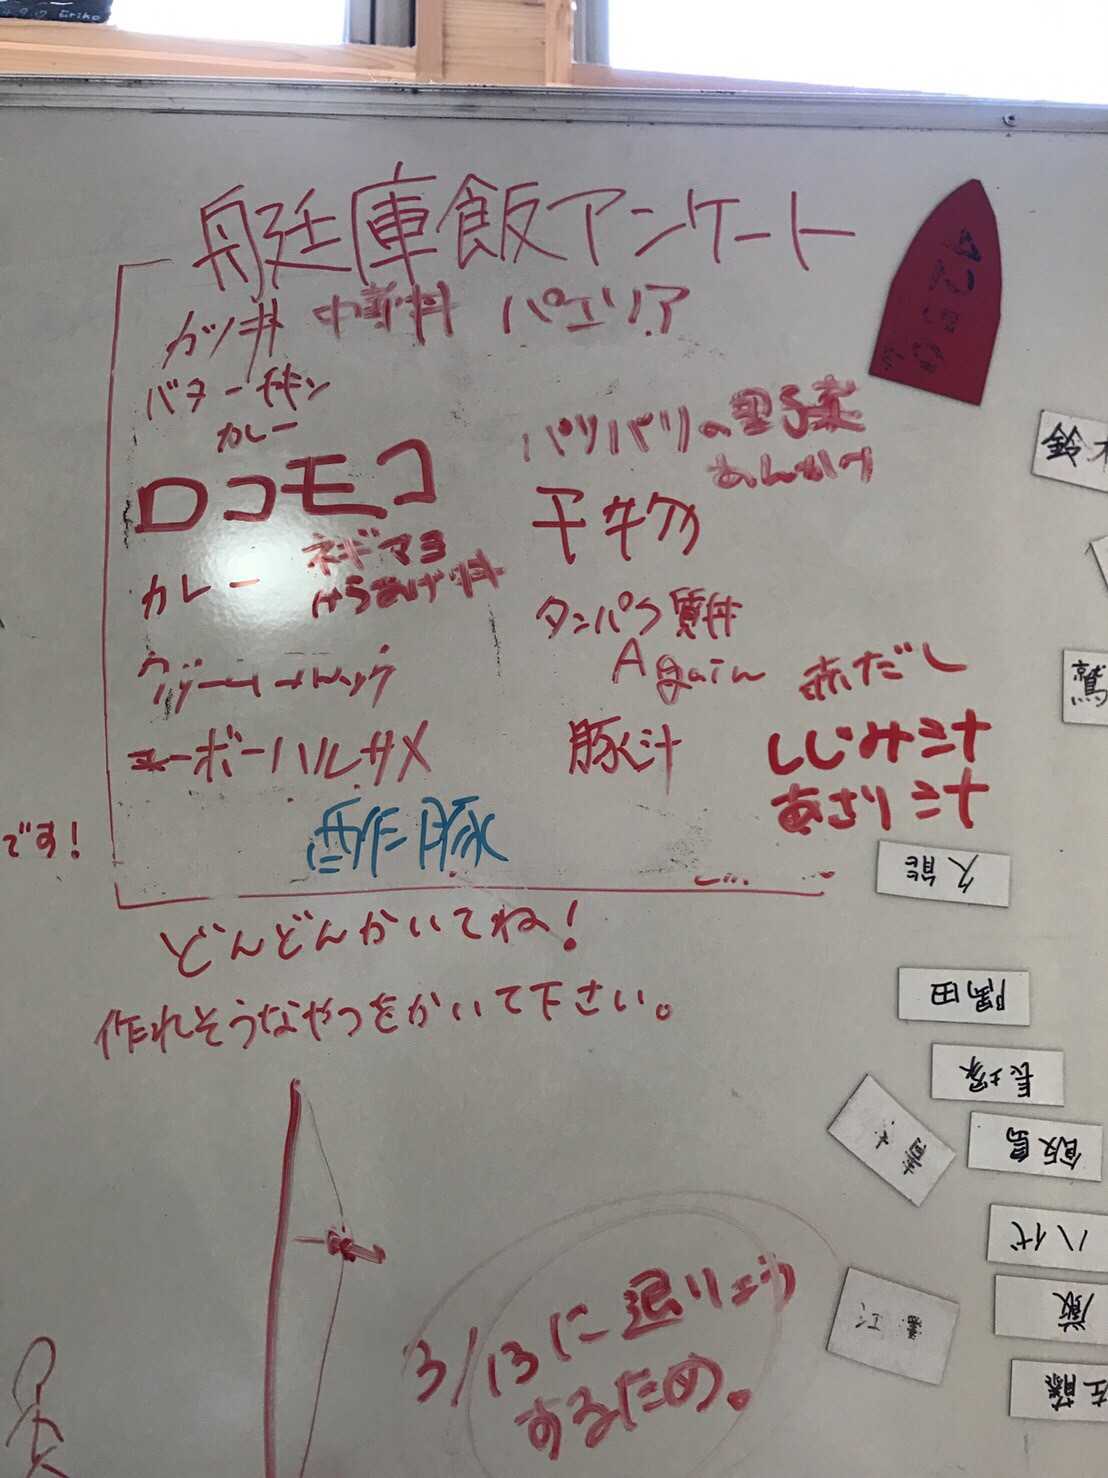 Eriko
艇庫飯アンケート
カツ丼 中華丼 パエリア
バターチキン
カレー
パリパリの野菜
あんかけ
ロコモコ
干物
ネギマヨ
からあげ丼
カレー
タンパク質丼
Again
赤だし
ボーハルサメ
豚汁
しじみ汁
あさり汁
酢豚
です!
どんどんかいてね!
作れそうなやつをかいて下さい。
3/13に退りょう
するため。
鈴木
鷲
久能
隅田
長塚
飯島
青木
八代
厳
佐藤